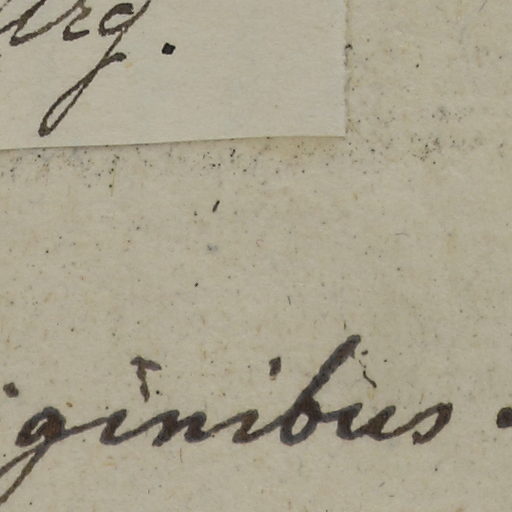 urg.
iginibus.